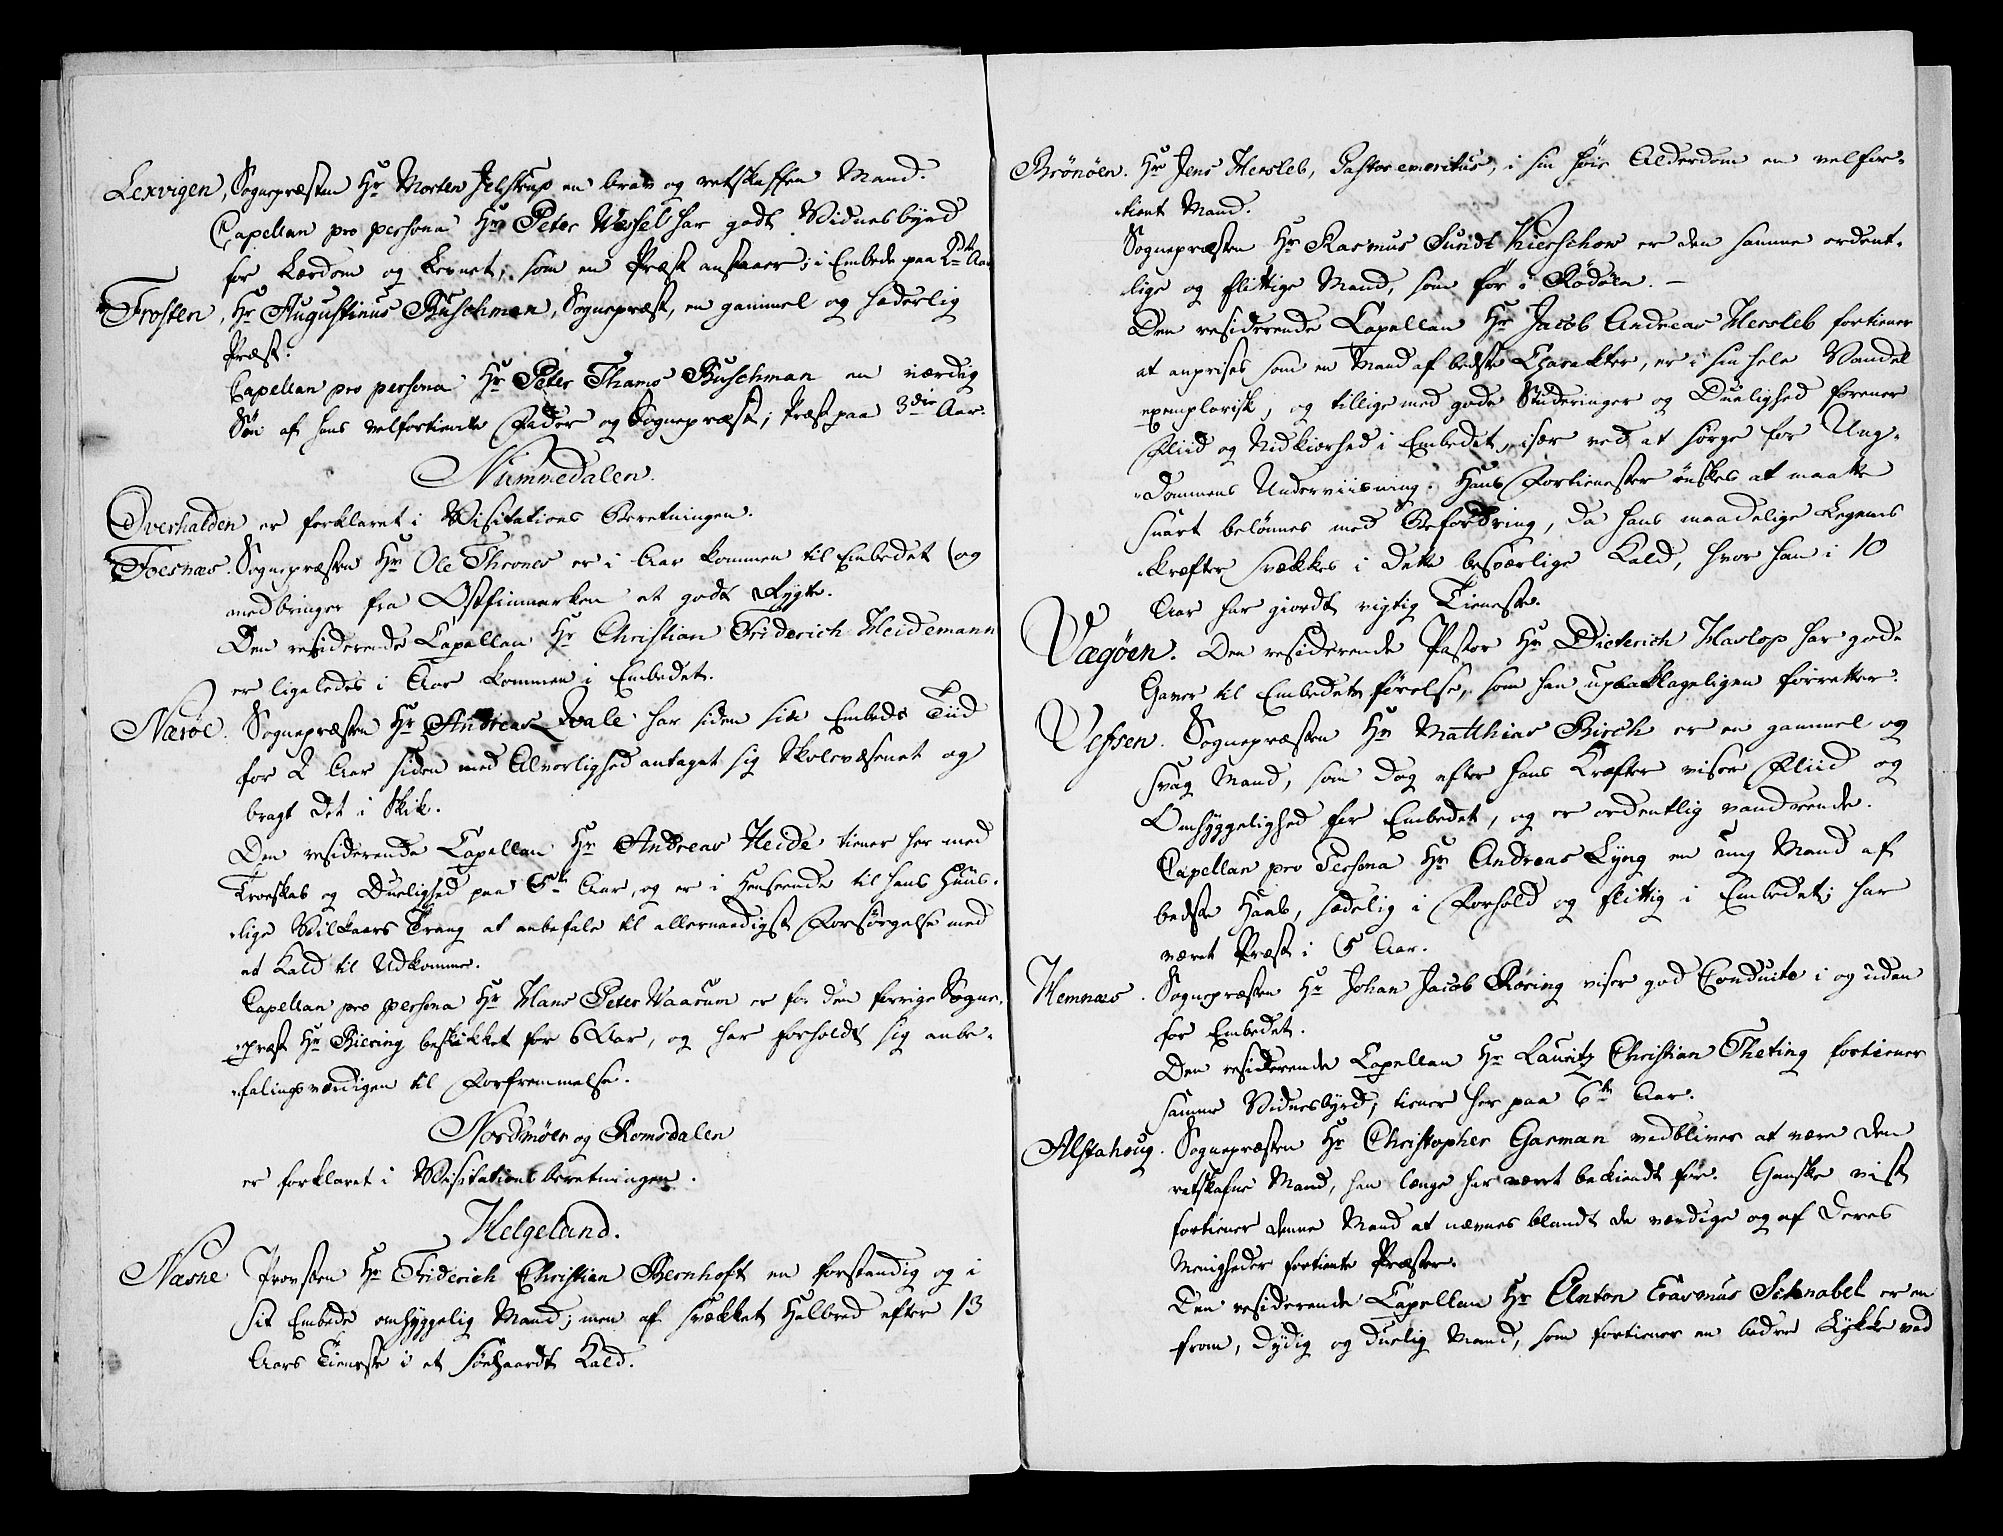 Lexvigen, Sognepræsten Hr Morten Jelstrup en brav og retskaffen Mand.
Capellan pro persona Hr Peter Wessel har godt Vidnesbyrd
for Lærdom og Levnet, som en Præst anstaaer; i Embede paa 2det Aar
Frosten, Hr Augustinus Buschman, Sognepræst, en gammel og hæderlig
Præst.
Capellan pro persona Hr Peter Thams Buschman en værdig
Søn af hans velfortiente Fader og Sognepræst; Præst paa 3die Aar.
Nummedalen.
Overhalden er forklaret i Visitations Beretningen.
Foesnæs. Sognepræsten Hr Ole Thrones er i Aar kommen til Embedet og
medbringer fra Ostfinmarken et godt Rygte.
Den residerende Capellan Hr Christian Friderich Heidemann
er ligeledes i Aar kommen i Embedet.
Nærøe. Sognepræsten Hr Andreas Qvale har siden sit Embeds Tiid
for 2 Aar siden med Alvorlighed antaget sig Skolevæsenet og
bragt det i Skik.
Den residerende Capellan Hr Andreas Heide tiener her med
Troeskab og Duelighed paa 5te Aar, og er i Henseende til hans Huus-
lige Vilkaars Trang at anbefale til allernaadigst Forsørgelse med
et Kald til Udkomme.
Capellan pro persona Hr Hans Peter Vaarum er for den forrige Sogne-
præst Hr Biering beskikket for 6 Aar, og har forholdt sig anbe-
falingsværdigen til Forfremmelse.
Nordmøer og Romsdalen
er forklaret i Visitationsberetningen.
Helgeland.
Næsne Provsten Hr Friderich Christian Bernhoft en forstandig og i
sit Embede omhyggelig Mand; men af svækket Helbred efter 13
Aars Tieneste i et Kald.
Brönöen. Hr Jens Hersleb, Pastor emeritus, i sin høie Alderdom en velfor-
tient Mand.
Sognepræsten Hr Rasmus Sundt Kierschow er den samme ordent-
lige og flittige Mand, som før i Rödöen. –
Den residerende Capellan Hr Jacob Andreas Hersleb fortiener
at anprises som en Mand af bedste Charakter, er i sin hele Vandel
exemplarisk, og tillige med gode Studeringer og Duelighed forener
Fliid og Nidkiærhed i Embedet, især ved at sørge for Ung-
dommens Underviisning. Hans Fortienester ønskes at maatte
snart belønnes med Befordring, da hans maadelige Legems
kræfter svækkes i dette besværlige Kald, hvor han i 10
Aar har giordt vigtig Tieneste.
Vægöen. Den residerende Pastor Hr Dieterich Haslop har gode
Gaver til Embedets førelse, som han upaaklageligen forretter.
Vefsen. Sognepræsten Hr Matthias Birch er en gammel og
svag Mand, som dog efter hans Kræfter viser Fliid og
Omhyggelighed for Embedet, og er ordentlig vandrende.
Capellan pro Persona Hr Andreas Lyng en ung Mand af
bedste Haab, sædelig i Forhold og flittig i Embedet; har
været Præst i 5 Aar.
Hemnæs. Sognepræsten Hr Johan Jacob Röring viser god Conduite i og uden
for Embedet.
Den residerende Capellan Hr Lauritz Christian Theting fortiener
samme Vidnesbyrd; tiener her paa 6te Aar.
Alstahoug. Sognepræsten Hr Christopher Garman vedbliver at være den
retskafne Mand, han længe har været bekiendt for. Ganske vist
fortiener denne Mand at nævnes blandt de værdige og af deres
Menigheder fortiente Præster.
Den residerende Capellan Hr Anton Erasmus Schnabel er en
from, dydig og duelig Mand, som fortiener en bedre Lykke ved